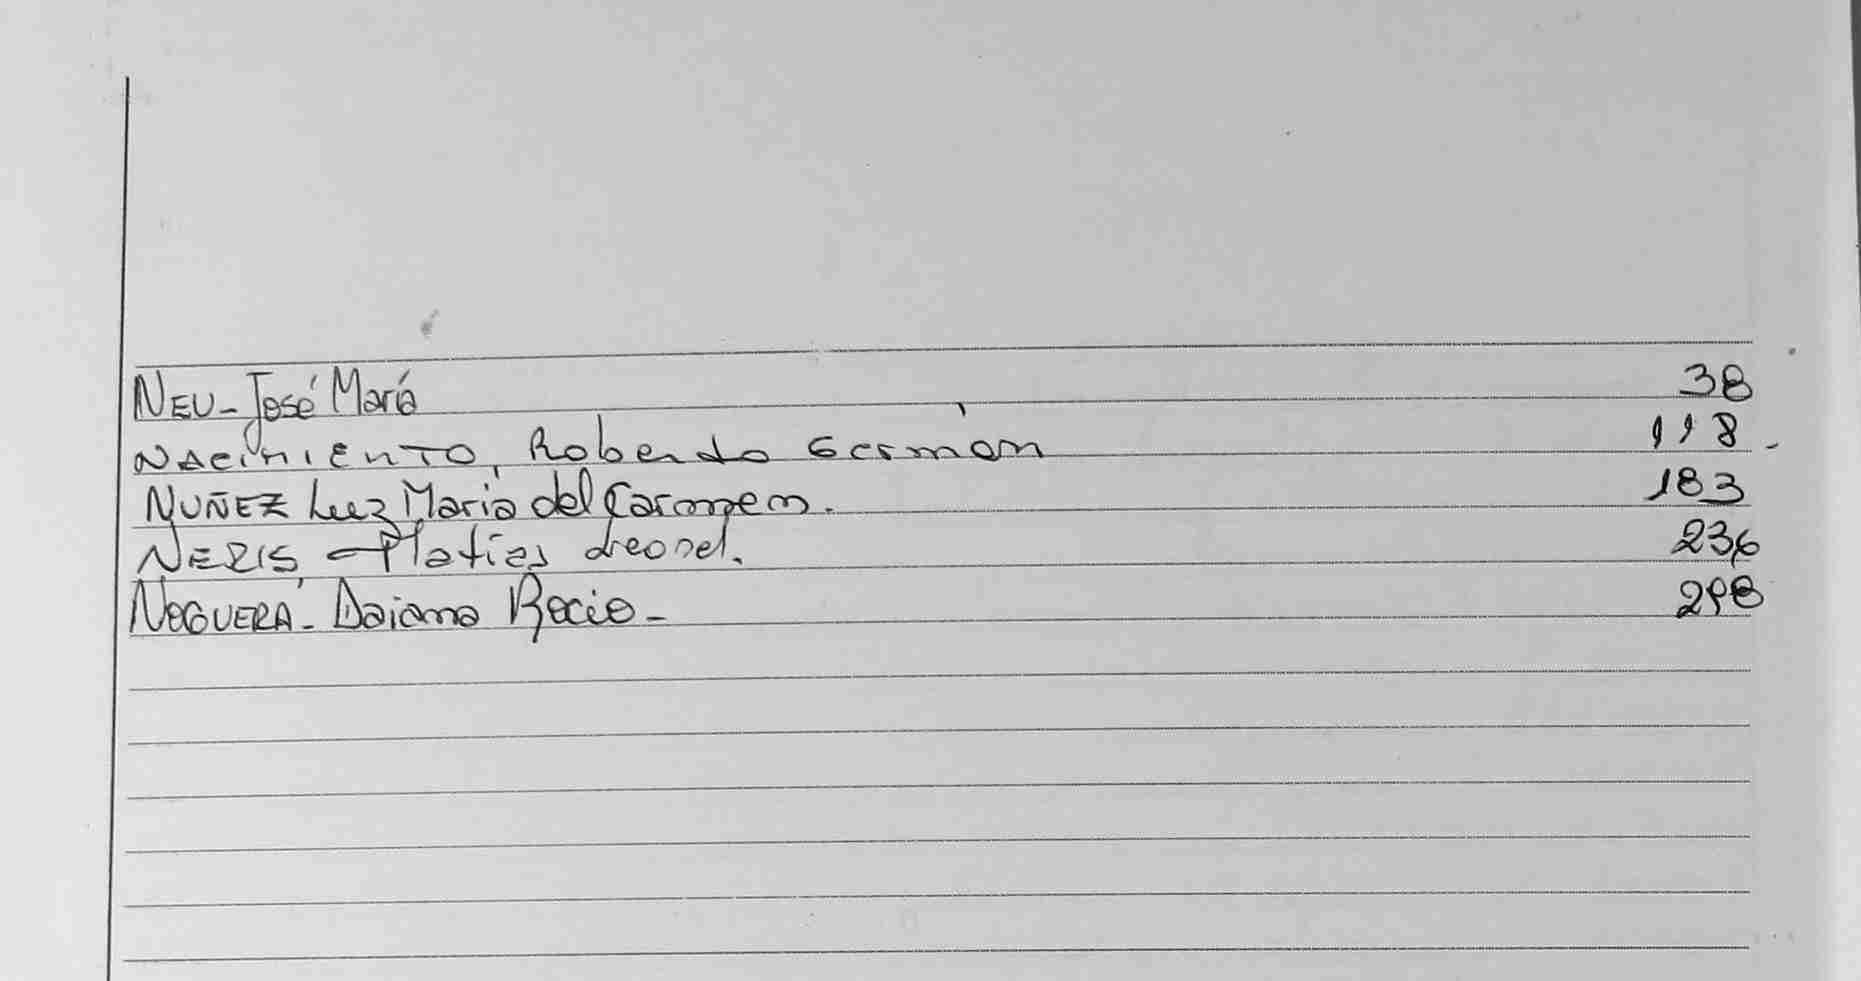 NEU - José María 38
NACIMIENTO, Roberto Germán 118 -
NUÑEZ Luz Maria del Carmen. 183
NERIS - Matías Leonel. 236
NOGUERA - Daiana Rocio - 298